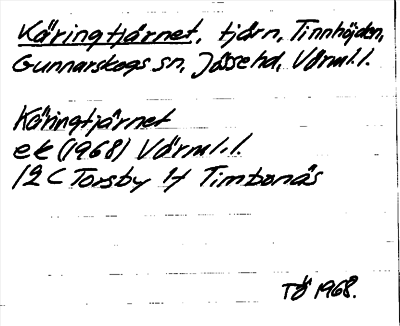 Käringtjärnet, tjärn, Tinnhöjden,
Gunnarskogs sn, Jösse hd, Värml. l.
Käringtjärnet
ek (1968) Värml. l.
12 C Torsby 1f Timbonäs
TÖ 1968.